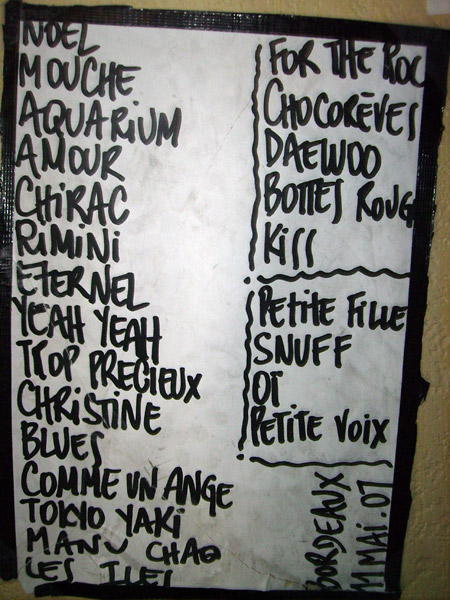 NOËL
MOUCHE
AQUARiUM
AMOUR
CHiRAC
RiMiNi
ETERNEL
YEAH YEAH
TROP PRECIEUX
CHRiSTiNE
BLUES
COMME UN ANGE
TOKYO YAKi
MANU CHAO
LES ILES
FOR THE ROC
CHOCORÊVES
DAEWOO
BOTTES ROUG
KiSS
PETiTE FiLLE
SNUFF
OT
PETiTE VOiX
BORDEAUX
11 MAi. 07